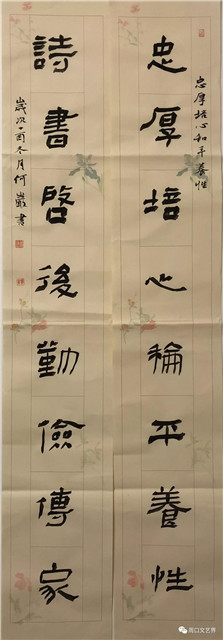 忠厚培心和平養性
忠厚培心稐平養性
詩書啓後勤儉傳家
歲次酉冬月何巖書
周口文艺界